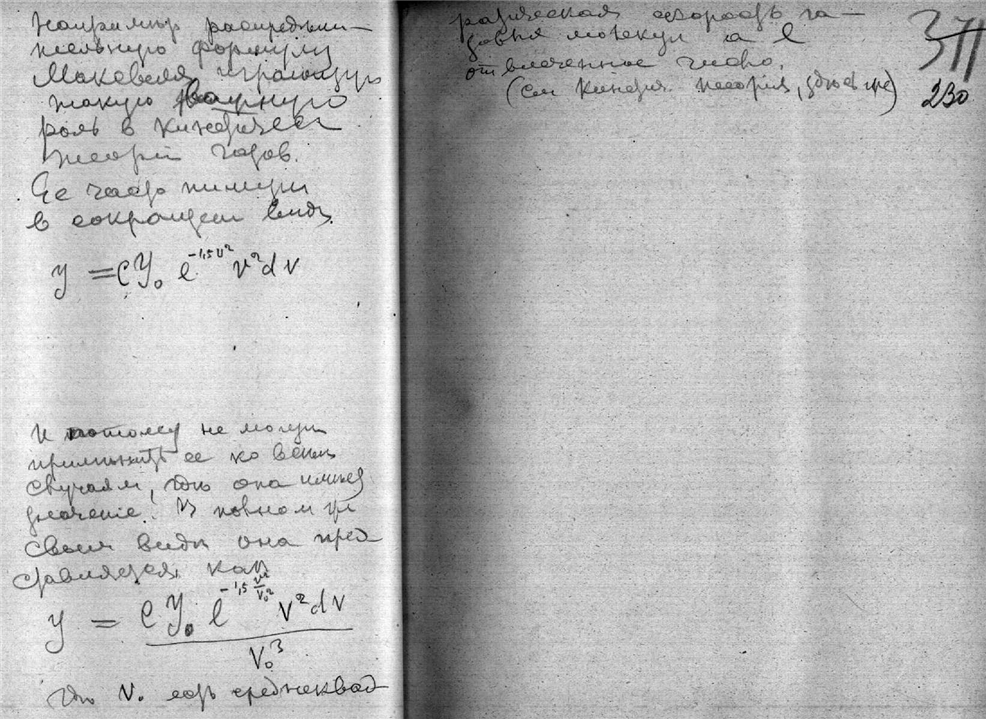 Например распредели-
тельную формулу
Максвелля играющую
такую важную
роль в кинетичес
теории газов.
Ее часто пишут
в сокращен видѣ
y = CY₀ e^{-1,5v²} v²dv
И потому не могут
примѣнить ее ко всѣм
случаям, гдѣ она имѣет
значение. В полном же
своем видѣ она пред
ставляется как
y = CY₀ e^{-1,5 v²/v₀²} v²dv / v₀³
гдѣ v₀ есть среднеквад
ратическая скорость га-
зовых молекул а e
отвлеченное число.
(См Кинетич. теория,
377
230